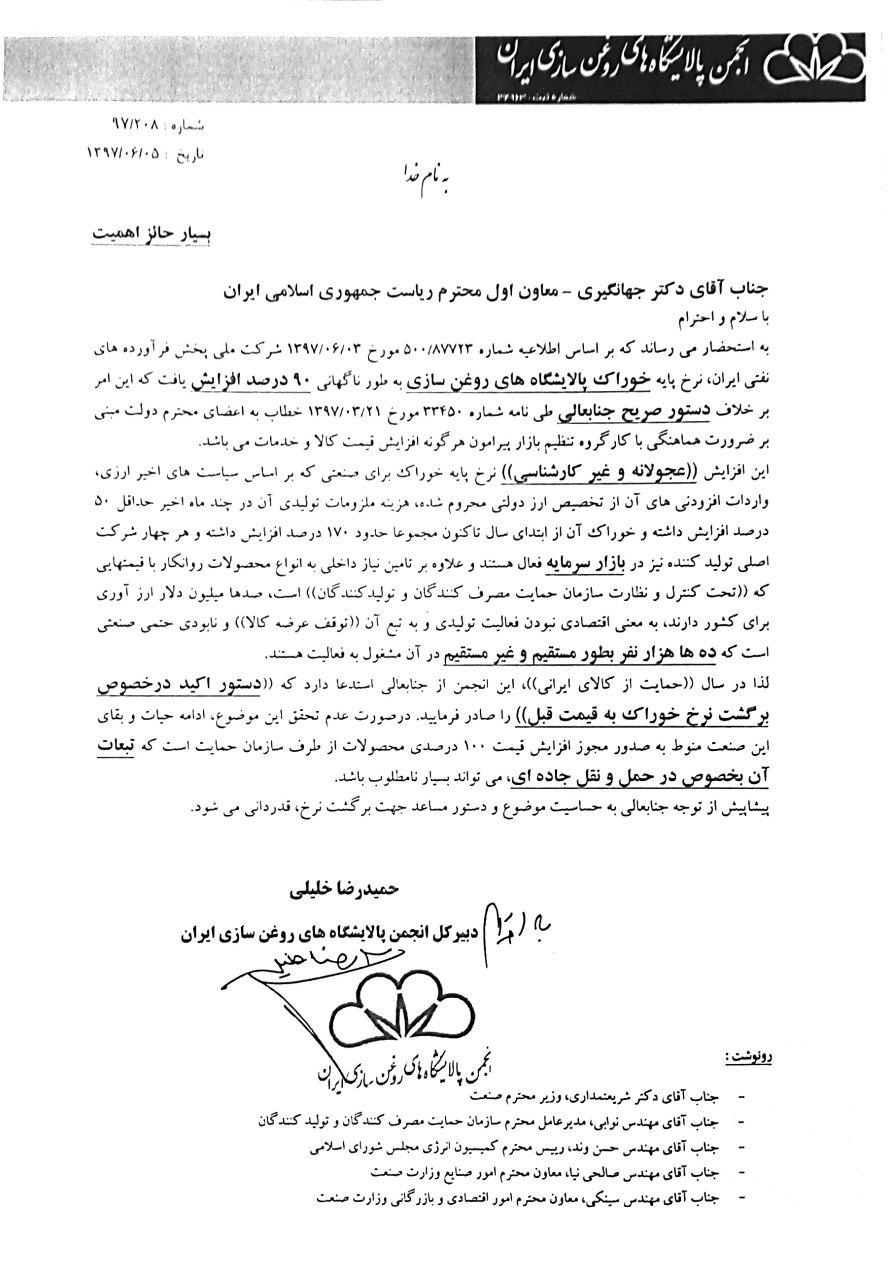 انجمن پالایشگاه های روغن سازی ایران
شماره ثبت: ۳۴۹۶۳
شماره : ۹۷/۲۰۸
تاریخ : ۱۳۹۷/۰۶/۰۵
به نام خدا
بسیار حائز اهمیت
جناب آقای دکتر جهانگیری - معاون اول محترم ریاست جمهوری اسلامی ایران
با سلام و احترام
به استحضار می رساند که بر اساس اطلاعیه شماره ۵۰۰/۸۷۷۲۳ مورخ ۱۳۹۷/۰۶/۰۳ شرکت ملی پخش فرآورده های
نفتی ایران، نرخ پایه خوراک پالایشگاه های روغن سازی به طور ناگهانی ۹۰ درصد افزایش یافت که این امر
بر خلاف دستور صریح جنابعالی طی نامه شماره ۳۳۴۵۰ مورخ ۱۳۹۷/۰۳/۲۱ خطاب به اعضای محترم دولت مبنی
بر ضرورت هماهنگی با کارگروه تنظیم بازار پیرامون هرگونه افزایش قیمت کالا و خدمات می باشد.
این افزایش ((عجولانه و غیر کارشناسی)) نرخ پایه خوراک برای صنعتی که بر اساس سیاست های اخیر ارزی،
واردات افزودنی های آن از تخصیص ارز دولتی محروم شده، هزینه ملزومات تولیدی آن در چند ماه اخیر حداقل ۵۰
درصد افزایش داشته و خوراک آن از ابتدای سال تاکنون مجموعا حدود ۱۷۰ درصد افزایش داشته و هر چهار شرکت
اصلی تولید کننده نیز در بازار سرمایه فعال هستند و علاوه بر تامین نیاز داخلی به انواع محصولات روانکار با قیمتهایی
که ((تحت کنترل و نظارت سازمان حمایت مصرف کنندگان و تولیدکنندگان)) است، صدها میلیون دلار ارز آوری
برای کشور دارند، به معنی اقتصادی نبودن فعالیت تولیدی و به تبع آن ((توقف عرضه کالا)) و نابودی حتمی صنعتی
است که ده ها هزار نفر بطور مستقیم و غیر مستقیم در آن مشغول به فعالیت هستند.
لذا در سال ((حمایت از کالای ایرانی))، این انجمن از جنابعالی استدعا دارد که ((دستور اکید درخصوص
برگشت نرخ خوراک به قیمت قبل)) را صادر فرمایید. درصورت عدم تحقق این موضوع، ادامه حیات و بقای
این صنعت منوط به صدور مجوز افزایش قیمت ۱۰۰ درصدی محصولات از طرف سازمان حمایت است که تبعات
آن بخصوص در حمل و نقل جاده ای، می تواند بسیار نامطلوب باشد.
پیشاپیش از توجه جنابعالی به حساسیت موضوع و دستور مساعد جهت برگشت نرخ، قدردانی می شود.
حمیدرضا خلیلی
با احترام
دبیرکل انجمن پالایشگاه های روغن سازی ایران
انجمن پالایشگاه های روغن سازی ایران
رونوشت :
- جناب آقای دکتر شریعتمداری، وزیر محترم صنعت
- جناب آقای مهندس نوابی، مدیرعامل محترم سازمان حمایت مصرف کنندگان و تولید کنندگان
- جناب آقای مهندس حسن وند، رییس محترم کمیسیون انرژی مجلس شورای اسلامی
- جناب آقای مهندس صالحی نیا، معاون محترم امور صنایع وزارت صنعت
- جناب آقای مهندس سینکی، معاون محترم امور اقتصادی و بازرگانی وزارت صنعت